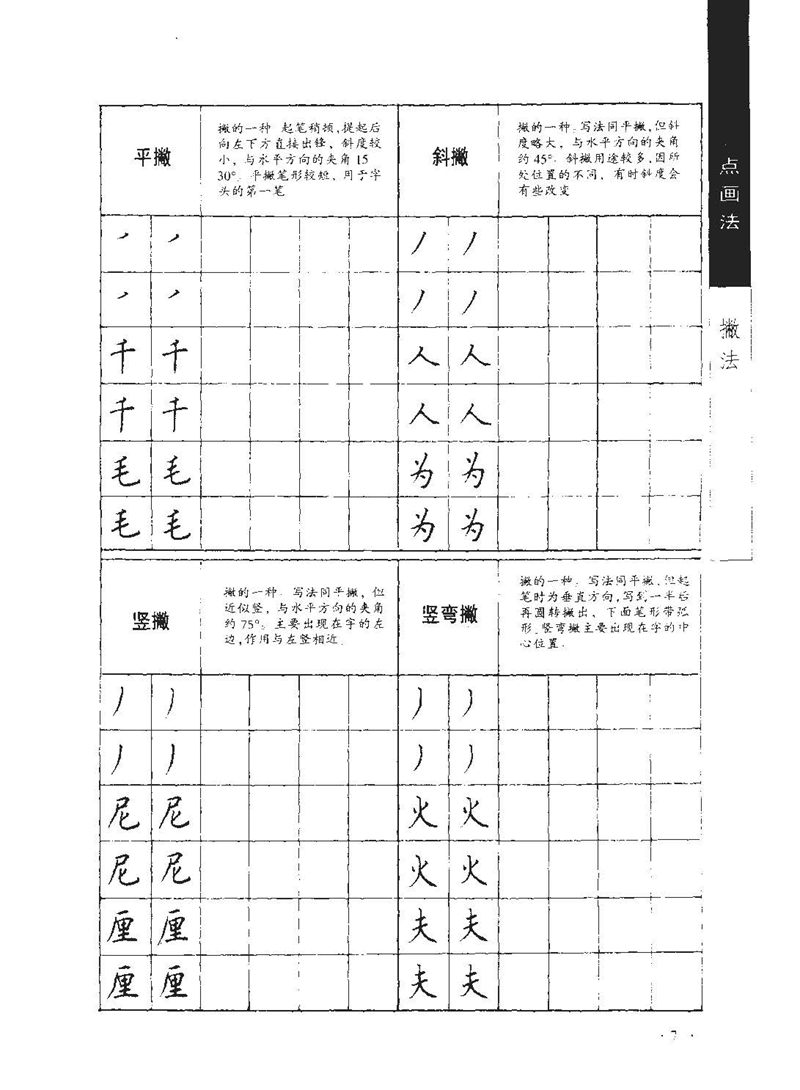 点画法
撇法
平撇
撇的一种 起笔稍顿,提起后
向左下方直接出锋、斜度较
小、与水平方向的夹角15
30°。平撇笔形较短、用于字
头的第一笔
斜撇
撇的一种。写法同平撇,但斜
度略大，与水平方向的夹角
约45°。斜撇用途较多,因所
处位置的不同，有时斜度会
有些改变
千 千
千 千
毛 毛
毛 毛
人 人
人 人
为 为
为 为
竖撇
撇的一种。写法同平撇，但
近似竖，与水平方向的夹角
约75°。主要出现在字的左
边,作用与左竖相近.
竖弯撇
撇的一种。写法同平撇、但起
笔时为垂直方向,写到一半后
再圆转撇出、下面笔形带弧
形。竖弯撇主要出现在字的中
心位置.
尼 尼
尼 尼
厘 厘
厘 厘
火 火
火 火
夫 夫
夫 夫
· 7 ·